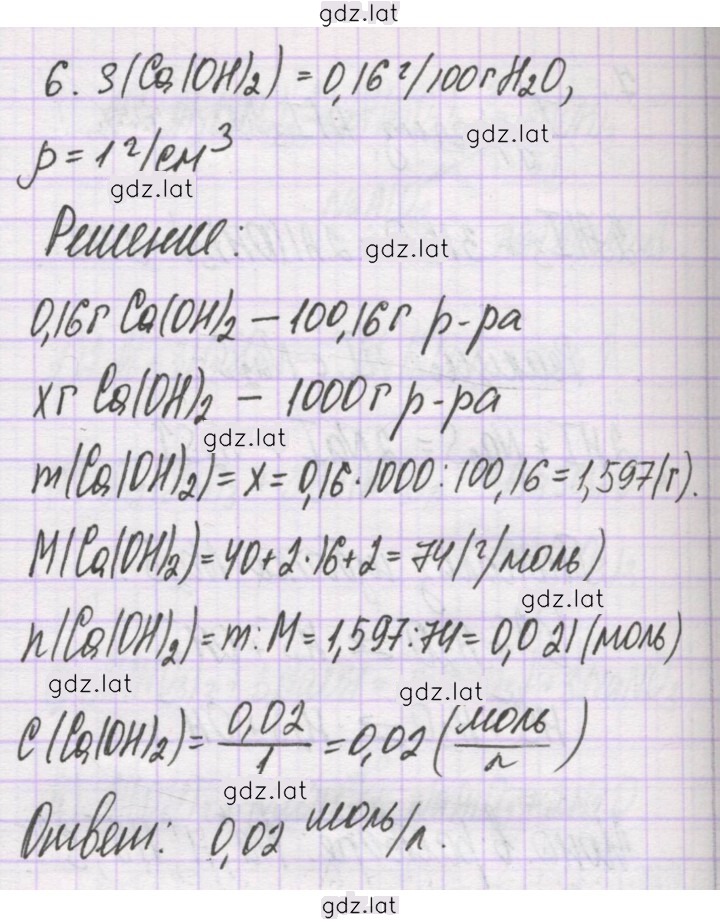 gdz.lat
6. S(Ca(OH)₂) = 0,16 г/100г H₂O,
gdz.lat
ρ = 1 г/см³
gdz.lat
Решение:
gdz.lat
0,16г Ca(OH)₂ – 100,16г р-ра
xг Ca(OH)₂ – 1000г р-ра
gdz.lat
m(Ca(OH)₂) = x = 0,16·1000:100,16 = 1,597(г).
M(Ca(OH)₂) = 40+2·16+2 = 74(г/моль)
gdz.lat
n(Ca(OH)₂) = m:M = 1,597:74 = 0,021(моль)
gdz.lat
gdz.lat
C(Ca(OH)₂) = 0,02/1 = 0,02 (моль/л)
gdz.lat
Ответ: 0,02 моль/л.
gdz.lat